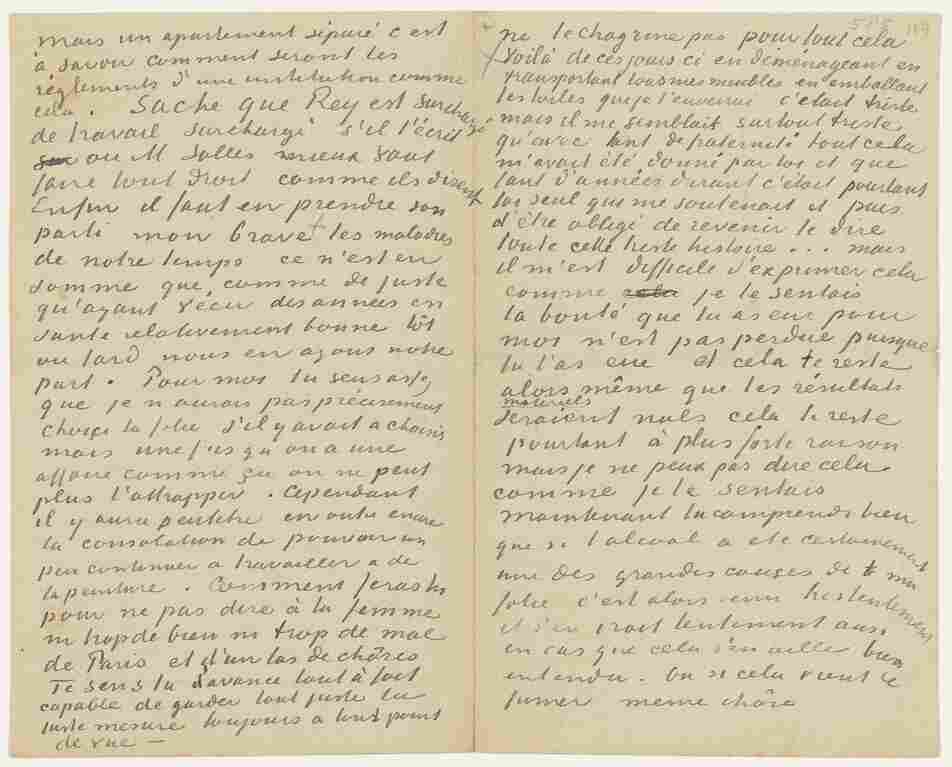 mais un apartement séparé c'est
à savoir comment seront les
règlements d'une institution comme
cela. Sache que Rey est surchargé
de travail surchargé s'il t'écrit
ou M Salles mieux vaut
faire tout droit comme ils disent
Enfin il faut en prendre son
parti mon brave les maladies
de notre temps ce n'est en
somme que comme de juste
qu'ayant vécu des années en
santé relativement bonne tôt
ou tard nous en ayons notre
part. Pour moi tu sens assez
que je n'aurais pas précisément
choisi la folie s'il y avait à choisir
mais une fois qu'on a une
affaire comme ça on ne peut
plus l'attrapper. Cependant
il y aura peutêtre en outre encore
la consolation de pouvoir un
peu continuer à travailler à de
la peinture. Comment feras tu
pour ne pas dire à ta femme
ni trop de bien ni trop de mal
de Paris et d'un tas de chôses
Te sens tu d'avance tout à fait
capable de garder tout juste la
juste mesure toujours à tout point
de vue —
515 189
ne te chagrine pas pour tout cela
Voilà de ces jours ci en déménageant en
transportant tous mes meubles en emballant
les toiles que je t'enverrai c'était triste
mais il me semblait surtout triste
qu'avec tant de fraternité tout cela
m'avait été donné par toi et que
tant d'années durant c'était pourtant
toi seul qui me soutenait et puis
d'être obligé de revenir te dire
toute cette triste histoire... mais
il m'est difficile d'exprimer cela
comme cela je le sentais
la bonté que tu as eue pour
moi n'est pas perdue puisque
tu l'as eue et cela te reste
alors même que les résultats
materiels
seraient nuls cela te reste
pourtant à plus forte raison
mais je ne peux pas dire cela
comme je le sentais
maintenant tu comprends bien
que si l'alcool a été certainement
une des grandes causes de ma
folie c'est alors venu très lentement
et s'en irait lentement aussi
en cas que cela s'en aille bien
entendu. Ou si cela vient de
fumer même chôse